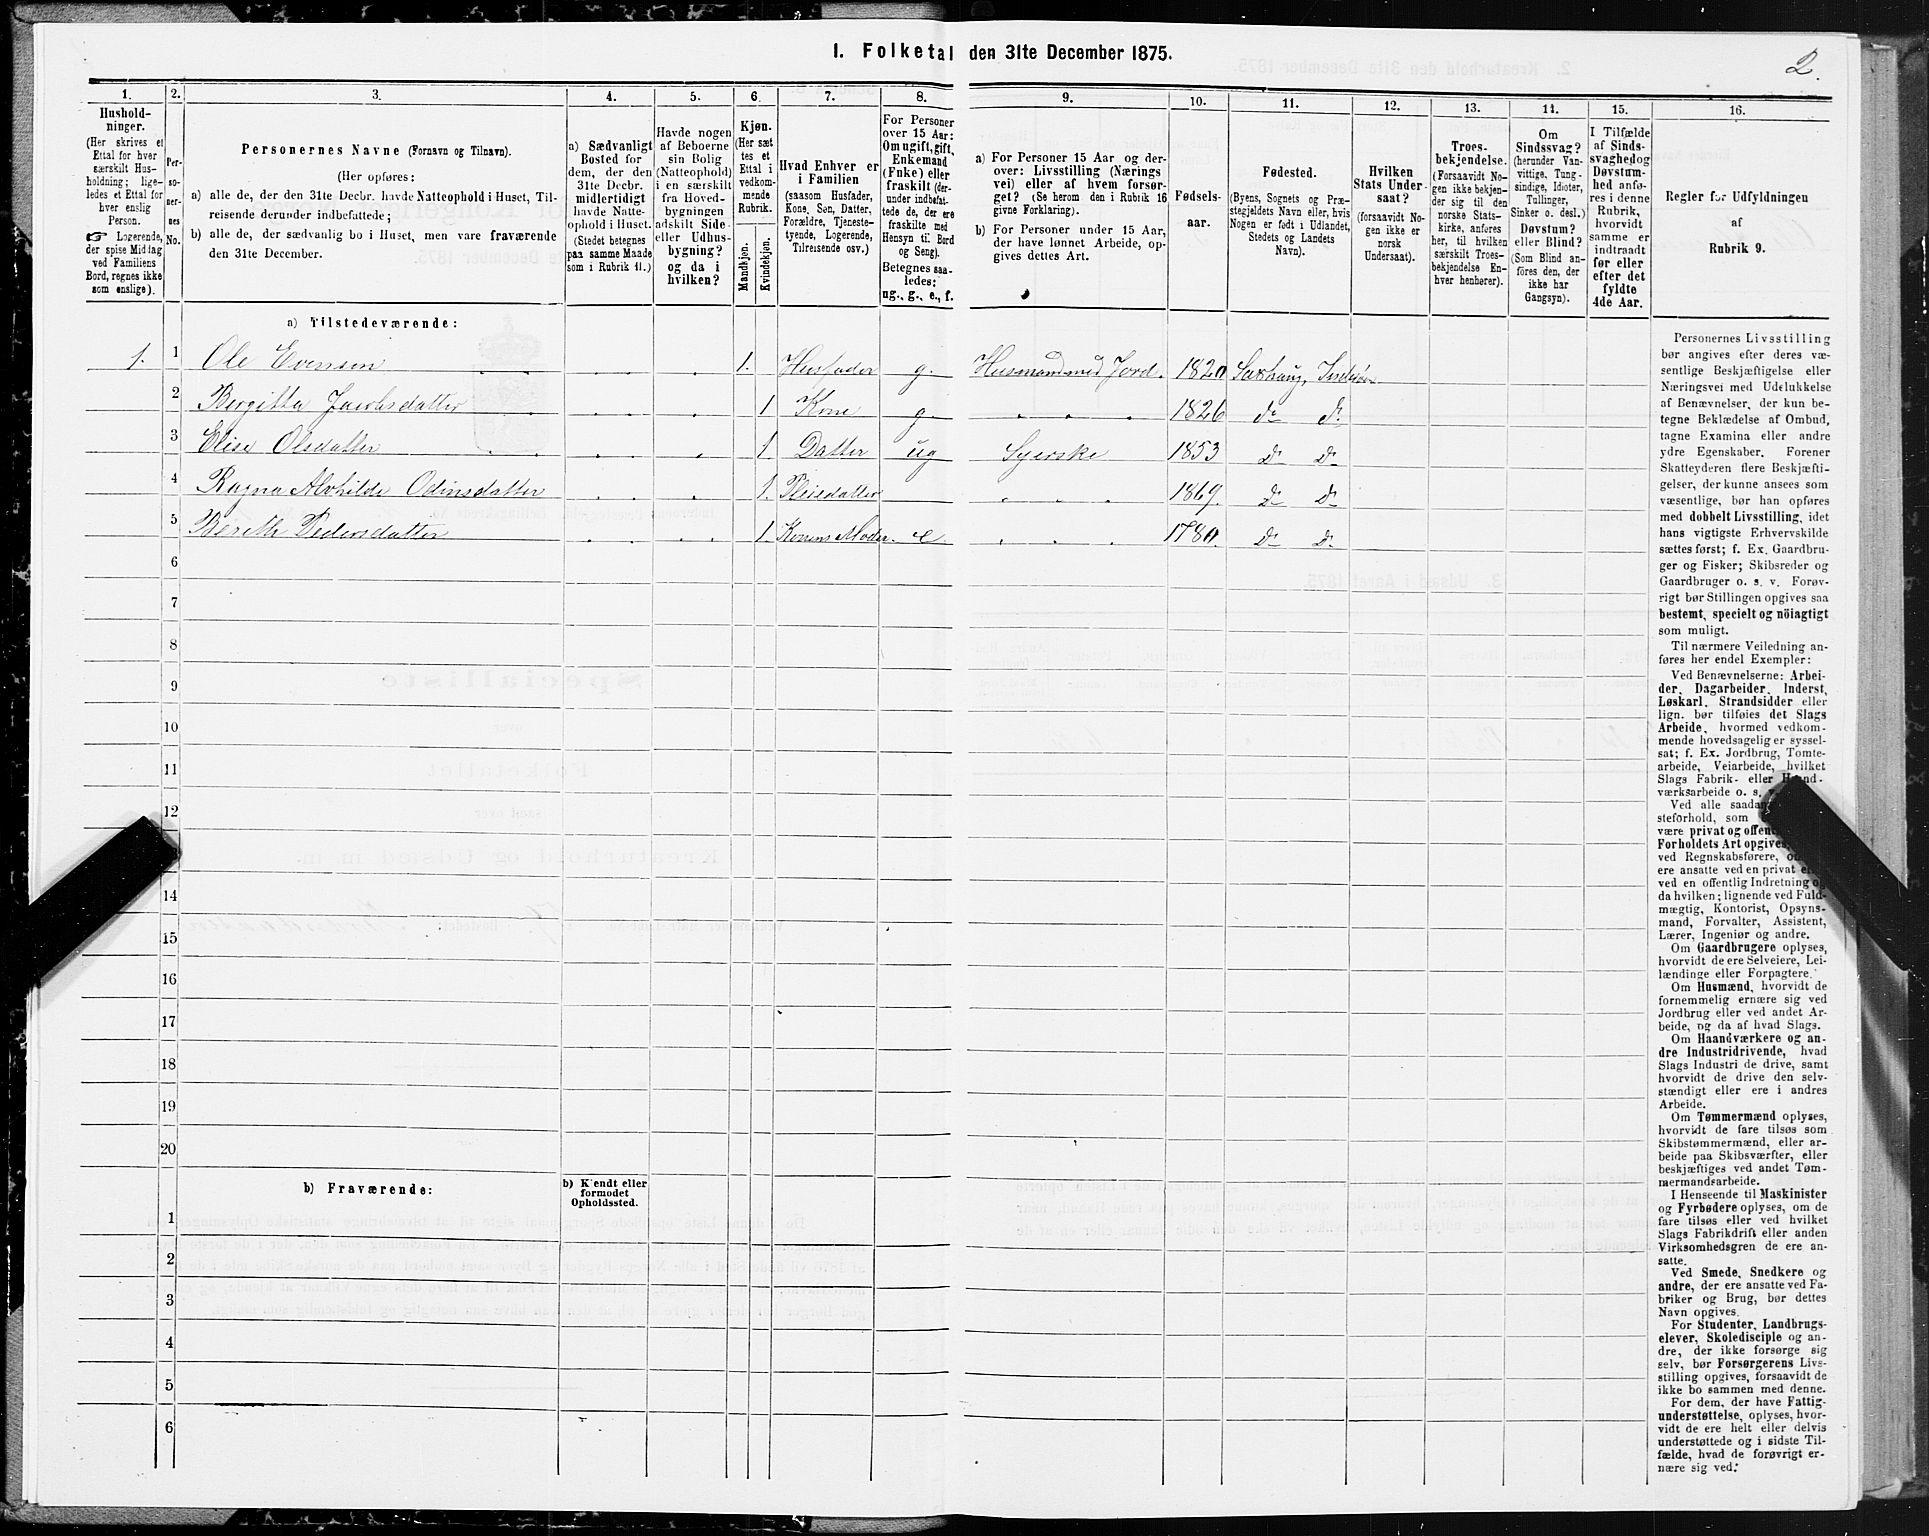 1. Folketal den 31te December 1875.
2.
1. 2. 3. 4. 5. 6. 7. 8. 9. 10. 11. 12. 13. 14. 15. 16.
Hushold-
ninger.
(Her skrives et
Ettal for hver
særskilt Hus-
holdning; lige-
ledes et Ettal for
hver enslig
Person.
☞ Logerende,
der spise Middag
ved Familiens
Bord, regnes ikke
som enslige).
Per-
so-
ner-
nes
No.
Personernes Navne (Fornavn og Tilnavn).
(Her opføres:
a) alle de, der den 31te Decbr. havde Natteophold i Huset, Til-
reisende derunder indbefattede;
b) alle de, der sædvanlig bo i Huset, men vare fraværende
den 31te December.
a) Sædvanligt
Bosted for
dem, der den
31te Decbr.
midlertidigt
havde Natte-
ophold i Huset.
(Stedet betegnes
paa samme Maade
som i Rubrik 11.)
Havde nogen
af Beboerne
sin Bolig
(Natteophold)
i en særskilt
fra Hoved-
bygningen
adskilt Side-
eller Udhus-
bygning?
og da i
hvilken?
Kjøn.
(Her sæt-
tes et
Ettal i
vedkom-
mende
Rubrik.
Mandkjøn.
Kvindekjøn.
Hvad Enhver er
i Familien
(saasom Husfader,
Kone, Søn, Datter,
Forældre, Tjeneste-
tyende, Logerende,
Tilreisende osv.)
For Personer
over 15 Aar:
Om ugift, gift,
Enkemand
(Enke) eller
fraskilt (der-
under indbefat-
tede de, der ere
fraskilte med
Hensyn til Bord
og Seng).
Betegnes saa-
ledes:
ug., g., e., f.
a) For Personer 15 Aar og der-
over: Livsstilling (Nærings
vei) eller af hvem forsør-
get? (Se herom den i Rubrik 16
givne Forklaring).
b) For Personer under 15 Aar,
der have lønnet Arbeide, op-
gives dettes Art.
Fødsels-
aar.
Fødested.
(Byens, Sognets og Præ-
stegjeldets Navn eller, hvis
Nogen er født i Udlandet,
Stedets og Landets
Navn).
Hvilken
Stats Under-
saat?
(forsaavidt No-
gen ikke er
norsk
Undersaat).
Troes-
bekjendelse.
(Forsaavidt No-
gen ikke bekjen-
der sig til den
norske Stats-
kirke, anføres
her, til hvilken
særskilt Troes-
bekjendelse En-
hver henhører).
Om
Sindssvag?
(herunder Van-
vittige, Tung-
sindige, Idioter,
Tullinger,
Sinker o. desl.)
Døvstum?
eller Blind?
(Som Blind an-
føres den, der
ikke har
Gangsyn).
I Tilfælde
af Sinds-
svaghed og
Døvstum-
hed anfø-
res i denne
Rubrik,
hvorvidt
samme er
indtraadt
før eller
efter det
fyldte
4de Aar.
Regler for Udfyldningen
af
Rubrik 9.
a) Tilstedeværende:
1. 1 Ole Evensen 1. Husfader g. Husmand med Jord. 1820 Saxhaug, Inderøen
2 Bergitta Jacobsdatter 1 Kone g 1826 do do
3 Elise Olsdatter 1 Datter ug Syerske 1853 do do
4 Ragna Alvhilde Odinsdatter 1. Pleiedatter 1869 do do
5 Bereth Pedersdatter 1. Konens Moder. e. 1780. do do
6
7
8
9
10
11
12
14
15
16
17
18
19
20
b) Fraværende:
b) Kjendt eller
formodet
Opholdssted.
1
2
3
4
5
6
Personernes Livsstilling
bør angives efter deres væ-
sentlige Beskjæftigelse eller
Næringsvei med Udelukkelse
af Benævnelser, der kun be-
tegne Beklædelse af Ombud,
tagne Examina eller andre
ydre Egenskaber. Forener
Skatteyderen flere Beskjæfti-
gelser, der kunne ansees som
væsentlige, bør han opføres
med dobbelt Livsstilling, idet
hans vigtigste Erhvervskilde
sættes først; f. Ex. Gaardbru-
ger og Fisker; Skibsreder og
Gaardbruger o. s. v. Forøv-
rigt bør Stillingen opgives saa
bestemt, specielt og nöiagtigt
som muligt.
Til nærmere Veiledning an-
føres her endel Exempler:
Ved Benævnelserne: Arbei-
der, Dagarbeider, Inderst,
Løskarl, Strandsidder eller
lign. bør tilføies det Slags
Arbeide, hvormed vedkom-
mende hovedsagelig er syssel-
sat; f. Ex. Jordbrug, Tomte-
arbeide, Veiarbeide, hvilket
Slags Fabrik- eller Haand-
værksarbeide o. s.
Ved alle
steforhold, som
være privat og
Forholdets Art opgives,
ved Regnskabsførere,
ere ansatte ved en privat
ved en offentlig Indretning og
da hvilken; lignende ved Fuld-
mægtig, Kontorist, Opsyns-
mand, Forvalter, Assistent,
Lærer, Ingeniør og andre.
Om Gaardbrugere oplyses,
hvorvidt de ere Selveiere, Lei-
lændinge eller Forpagtere.
Om Husmænd, hvorvidt de
fornemmelig ernære sig ved
Jordbrug eller ved andet Ar-
beide, og da af hvad Slags.
Om Haandværkere og an-
dre Industridrivende, hvad
Slags Industri de drive, samt
hvorvidt de drive den selv-
stændigt eller ere i andres
Arbeide.
Om Tømmermænd oplyses,
hvorvidt de fare tilsøs som
Skibstømmermænd, eller ar-
beide paa Skibsværfter, eller
beskjæftiges ved andet Tøm-
mermandsarbeide.
I Henseende til Maskinister
og Fyrbødere oplyses, om de
fare tilsøs eller ved hvilket
Slags Fabrikdrift eller anden
Virksomhedsgren de ere an-
satte.
Ved Smede, Snedkere og
andre, der ere ansatte ved Fa-
briker og Brug, bør dettes
Navn opgives.
For Studenter, Landbrugs-
elever, Skoledisciple og an-
dre, der ikke forsørge sig
selv, bør Forsørgerens Livs-
stilling opgives, forsaavidt de
ikke bo sammen med denne.
For dem, der have Fattig-
understøttelse, oplyses, hvor-
vidt de ere helt eller delvis
understøttede og i sidste Til-
fælde, hvad de forøvrigt er-
nære sig ved.